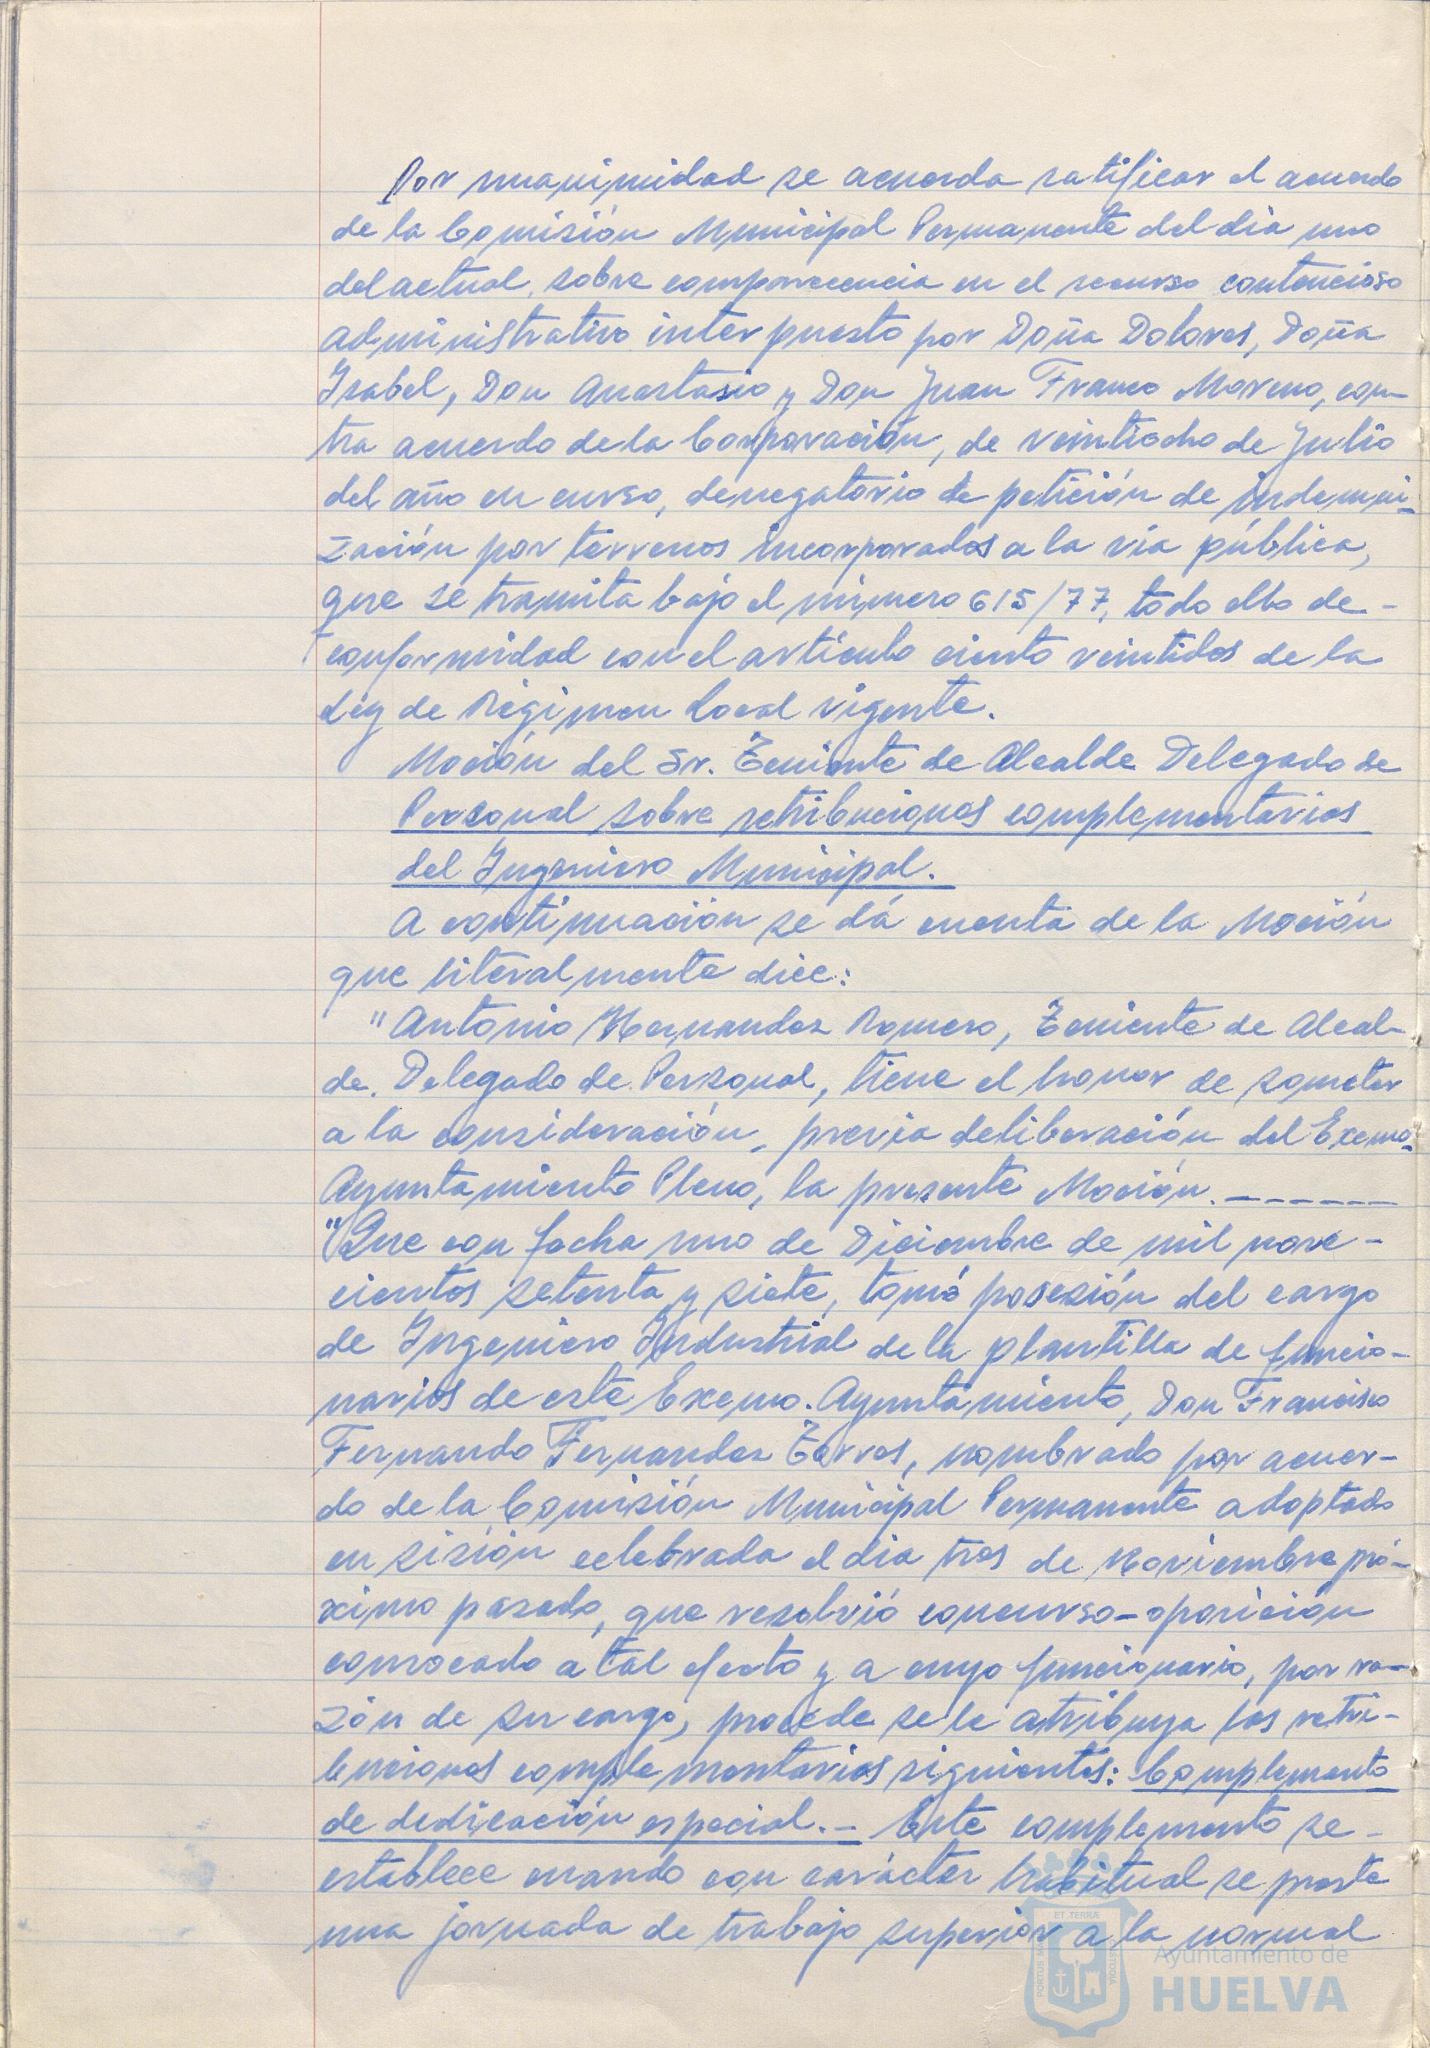 Por unanimidad se acuerda ratificar el acuerdo
de la Comisión Municipal Permanente del dia uno
del actual, sobre comparecencia en el recurso contencioso
administrativo interpuesto por Doña Dolores, Doña
Isabel, Don Anastasio y Don Juan Franco Moreno, con-
tra acuerdo de la Corporación, de veintiocho de Julio
del año en curso, denegatorio de petición de indemni-
zación por terrenos incorporados a la vía pública,
que se tramita bajo el número 615/77, todo ello de-
conformidad con el artículo ciento veintidos de la
Ley de Régimen Local vigente.
Moción del Sr. Teniente de Alcalde Delegado de
Personal sobre retribuciones complementarias
del Ingeniero Municipal.
A continuación se dá cuenta de la Moción
que literalmente dice:
"Antonio Hernandez Romero, Teniente de Alcal-
de. Delegado de Personal, tiene el honor de someter
a la consideración, previa deliberación del Excmo.
Ayuntamiento Pleno, la presente Moción. ------
"Que con fecha uno de Diciembre de mil nove-
cientos setenta y siete, tomó posesión del cargo
de Ingeniero Industrial de la plantilla de funcio-
narios de este Excmo. Ayuntamiento, Don Francisco
Fernando Fernandez Torres, nombrado por acuer-
do de la Comisión Municipal Permanente adoptado
en sisión celebrada el dia tres de Noviembre pró-
ximo pasado, que resolvió concurso-oposición
convocado a tal efecto y a cuyo funcionario, por ra-
zón de su cargo, procede se le atribuya las retri-
buciones complementarias siguientes: Complemento
de dedicación especial.- Este complemento se-
establece cuando con carácter habitual se preste
una jornada de trabajo superior a la normal
Ayuntamiento de
HUELVA